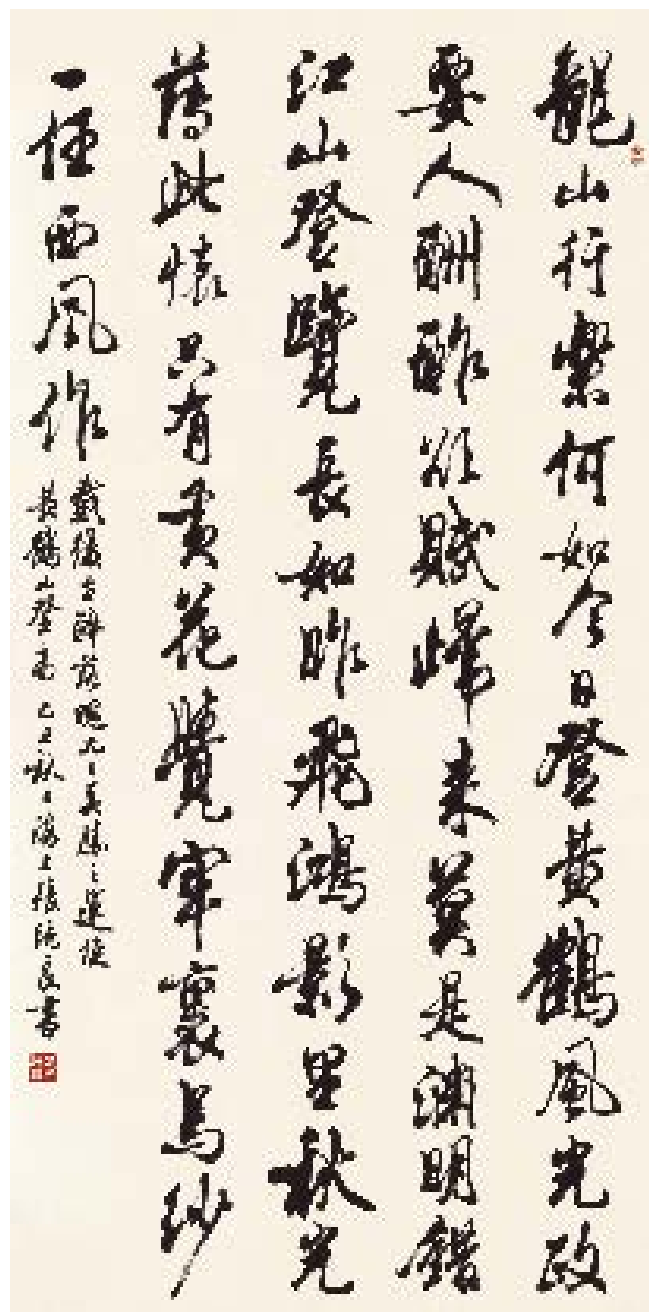 龍山行樂何如今日登黃鶴風光政
要人酬酢欲賦歸來莫是淵明錯
江山登覽長如昨飛鴻影里秋光
薄此懷只有黃花覺牢裹烏紗
一任西風作
戴復古醉落魄九日吳勝之運使
黃鶴山登高己丑秋日海上張統良書